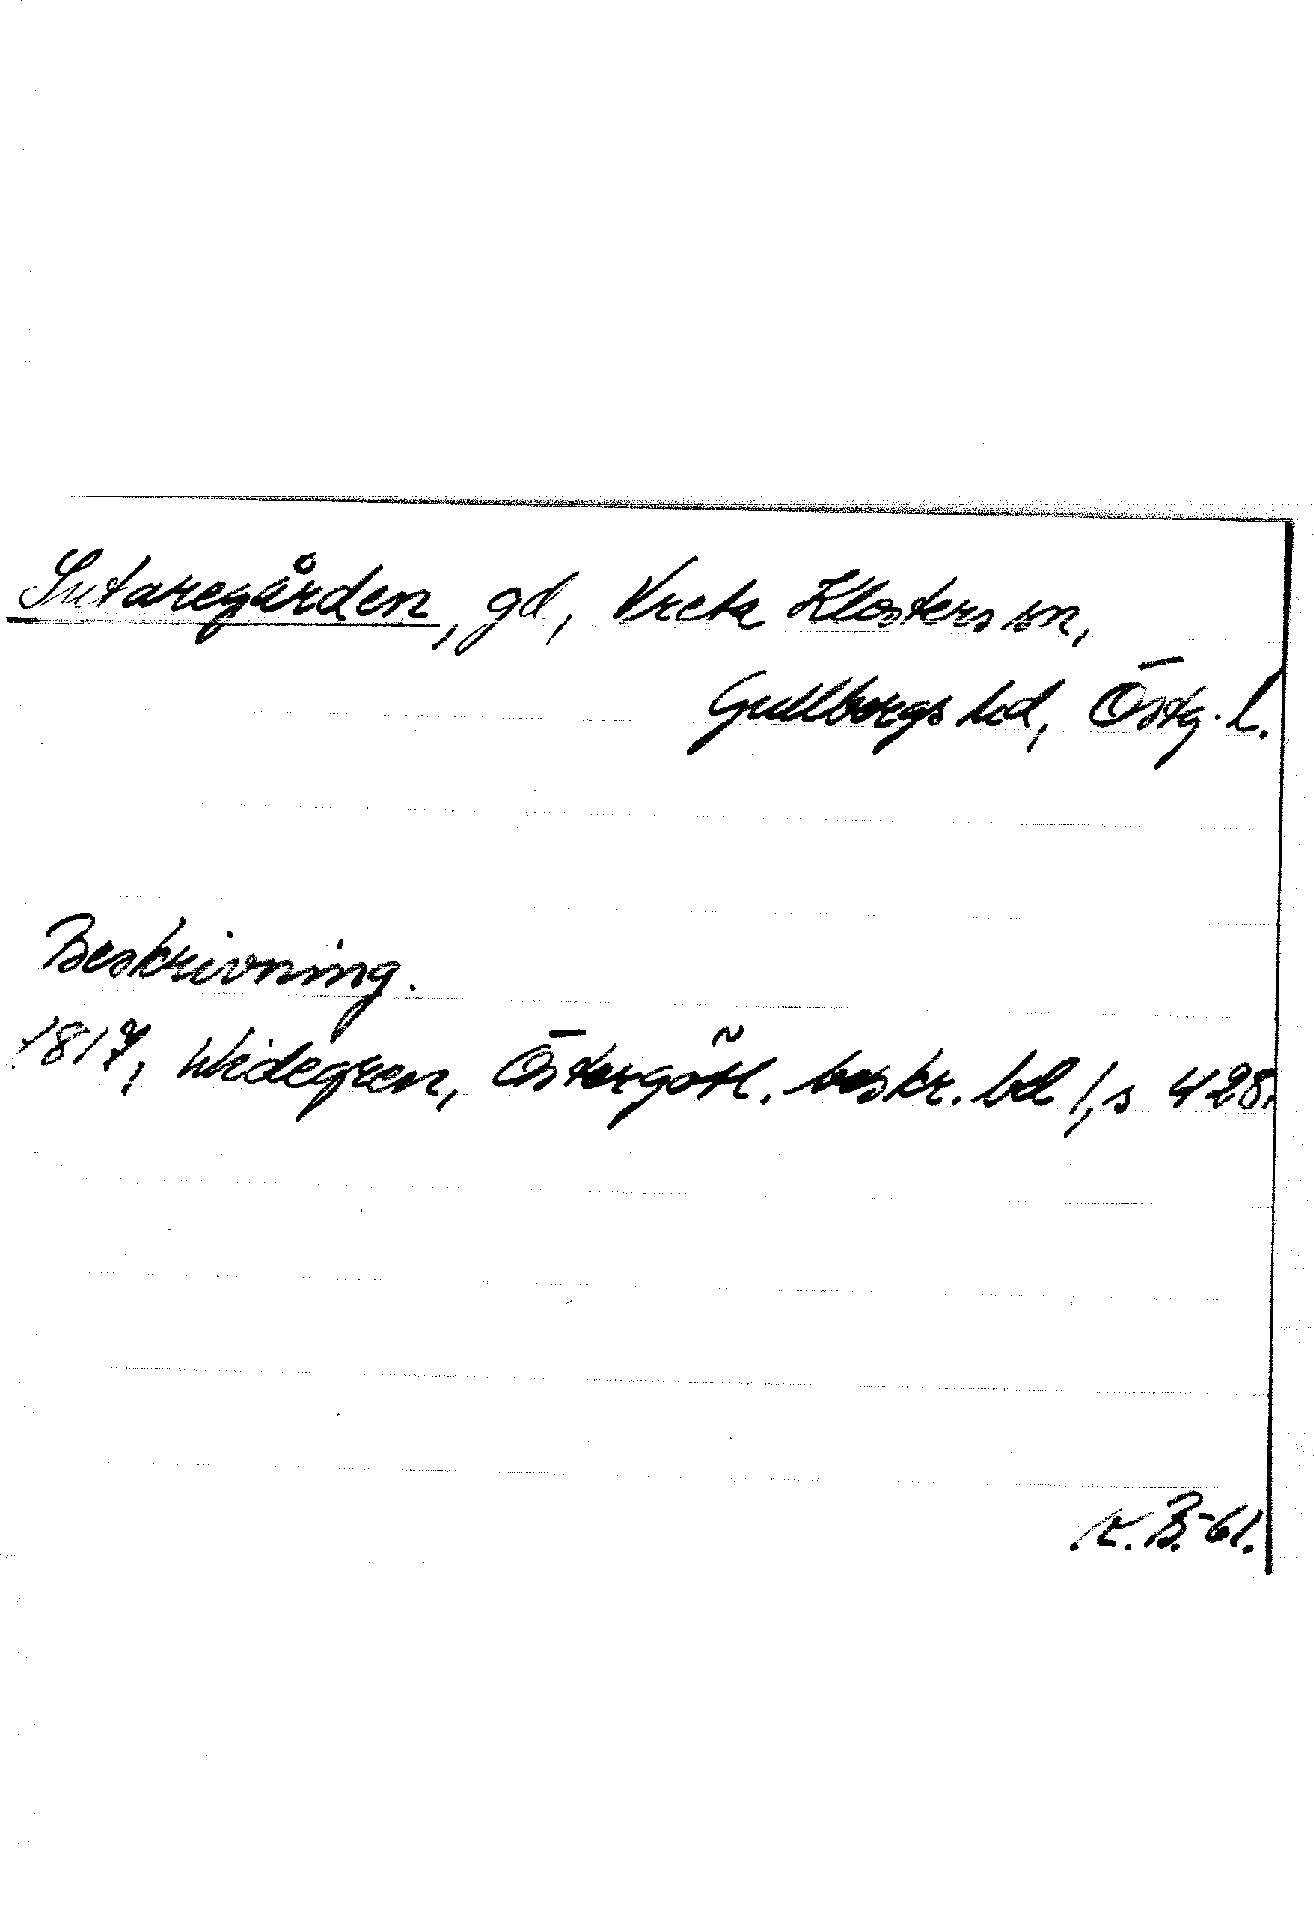 Sutaregården, gd, Vreta Klosters sn,
Gullbergs hd, Östg. l.
Beskrivning.
1817, Widegren, Östergötl. beskr. bd 1, s 428.
K. B.-61.